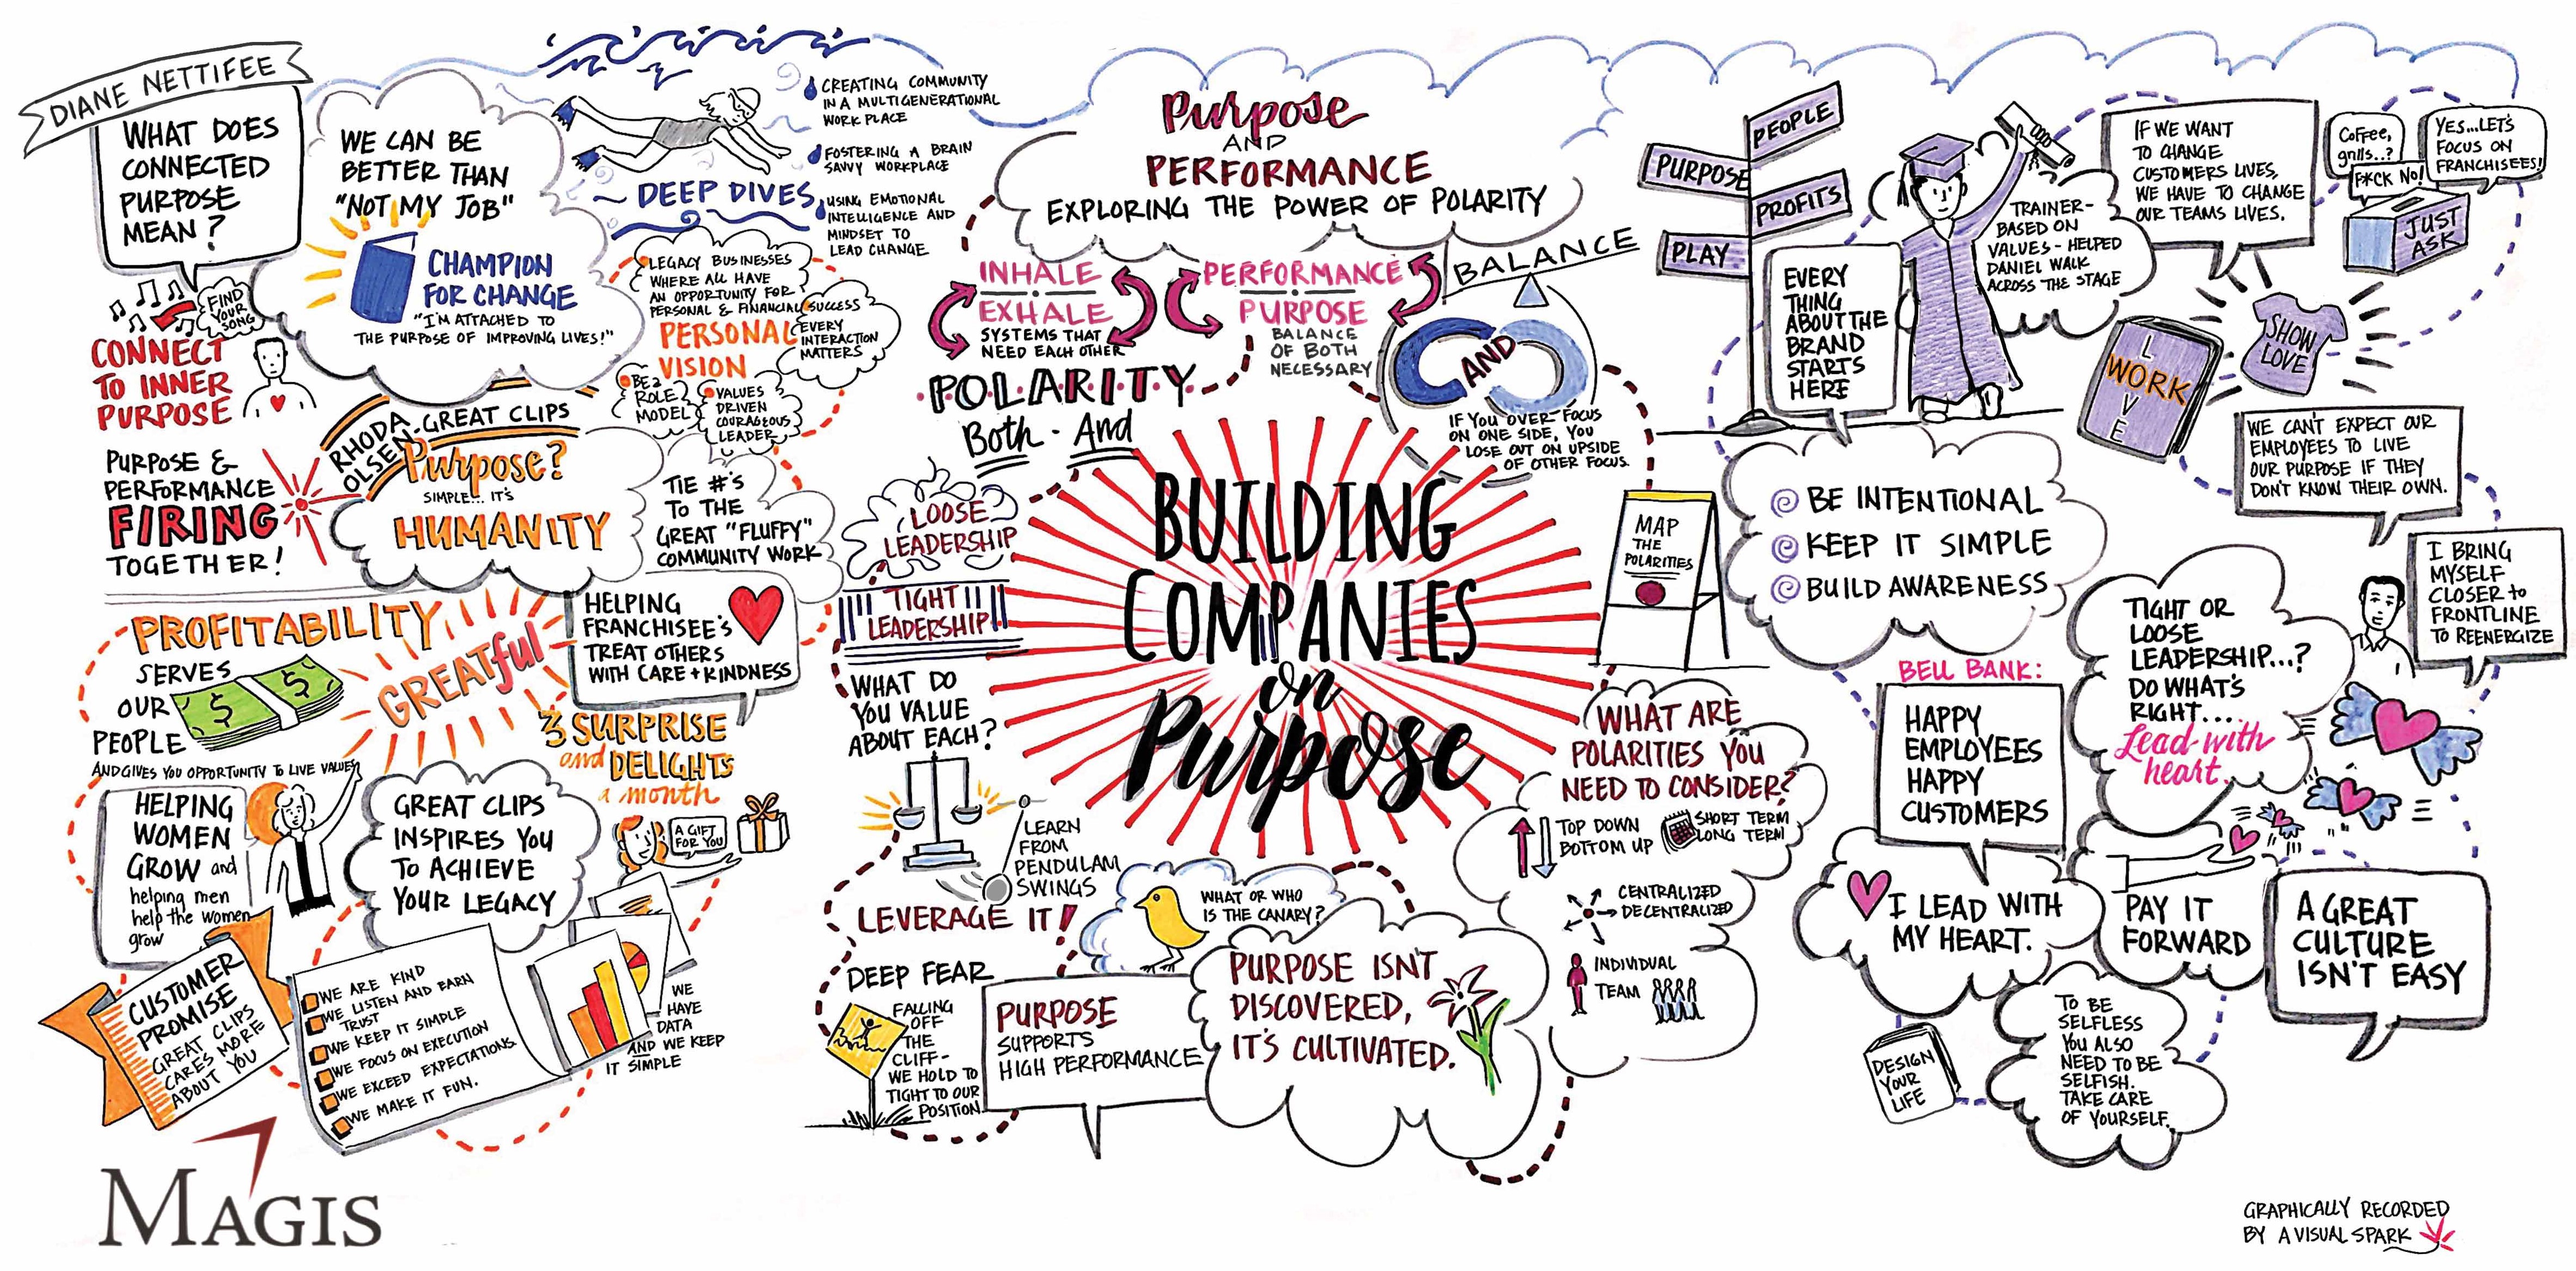 DIANE NETTIFEE
WHAT DOES
CONNECTED
PURPOSE
MEAN?
FIND
YOUR
SONG
CONNECT
TO INNER
PURPOSE
PURPOSE &
PERFORMANCE
FIRING
TOGETHER!
WE CAN BE
BETTER THAN
"NOT MY JOB"
CHAMPION
FOR CHANGE
"I'M ATTACHED TO
THE PURPOSE OF IMPROVING LIVES!"
DEEP DIVES
CREATING COMMUNITY
IN A MULTIGENERATIONAL
WORK PLACE
FOSTERING A BRAIN
SAVVY WORKPLACE
USING EMOTIONAL
INTELLIGENCE AND
MINDSET TO
LEAD CHANGE
LEGACY BUSINESSES
WHERE ALL HAVE
AN OPPORTUNITY FOR
PERSONAL & FINANCIAL SUCCESS
PERSONAL
VISION
EVERY
INTERACTION
MATTERS
BE A
ROLE
MODEL
VALUES
DRIVEN
COURAGEOUS
LEADER
RHODA
OLSEN-GREAT CLIPS
Purpose?
SIMPLE... IT'S
HUMANITY
TIE #'S
TO THE
GREAT "FLUFFY"
COMMUNITY WORK
PROFITABILITY
SERVES
OUR
PEOPLE
AND GIVES YOU OPPORTUNITY TO LIVE VALUES
$ $
GREATful
HELPING
FRANCHISEE'S
TREAT OTHERS
WITH CARE + KINDNESS
3 SURPRISE
and DELIGHTS
a month
A GIFT
FOR YOU
HELPING
WOMEN
GROW and
helping men
help the women
grow
GREAT CLIPS
INSPIRES YOU
TO ACHIEVE
YOUR LEGACY
CUSTOMER
PROMISE
GREAT CLIPS
CARES MORE
ABOUT YOU
WE ARE KIND
WE LISTEN AND EARN
TRUST
WE KEEP IT SIMPLE
WE FOCUS ON EXECUTION
WE EXCEED EXPECTATIONS.
WE MAKE IT FUN.
WE
HAVE
DATA
AND WE KEEP
IT SIMPLE
MAGIS
Purpose
AND
PERFORMANCE
EXPLORING THE POWER OF POLARITY
INHALE
EXHALE
SYSTEMS THAT
NEED EACH OTHER
PERFORMANCE
PURPOSE
BALANCE
OF BOTH
NECESSARY
BALANCE
AND
IF YOU OVER-FOCUS
ON ONE SIDE, YOU
LOSE OUT ON UPSIDE
OF OTHER FOCUS.
POLARITY
Both - And
LOOSE
LEADERSHIP
TIGHT
LEADERSHIP
WHAT DO
YOU VALUE
ABOUT EACH?
LEARN
FROM
PENDULAM
SWINGS
LEVERAGE IT!
BUILDING
COMPANIES
on
Purpose
MAP
THE
POLARITIES
WHAT ARE
POLARITIES YOU
NEED TO CONSIDER?
TOP DOWN
BOTTOM UP
SHORT TERM
LONG TERM
CENTRALIZED
DECENTRALIZED
INDIVIDUAL
TEAM
WHAT OR WHO
IS THE CANARY?
DEEP FEAR
FALLING
OFF
THE
CLIFF-
WE HOLD TO
TIGHT TO OUR
POSITION.
PURPOSE
SUPPORTS
HIGH PERFORMANCE
PURPOSE ISN'T
DISCOVERED,
IT'S CULTIVATED.
PEOPLE
PURPOSE
PROFITS
PLAY
EVERY
THING
ABOUT THE
BRAND
STARTS
HERE
TRAINER-
BASED ON
VALUES - HELPED
DANIEL WALK
ACROSS THE STAGE
IF WE WANT
TO CHANGE
CUSTOMERS LIVES,
WE HAVE TO CHANGE
OUR TEAMS LIVES.
Coffee,
grills..?
F*CK NO!
YES...LET'S
FOCUS ON
FRANCHISEES!
JUST
ASK
SHOW
LOVE
LOVE
WORK
WE CAN'T EXPECT OUR
EMPLOYEES TO LIVE
OUR PURPOSE IF THEY
DON'T KNOW THEIR OWN.
BE INTENTIONAL
KEEP IT SIMPLE
BUILD AWARENESS
I BRING
MYSELF
CLOSER to
FRONTLINE
TO REENERGIZE
TIGHT OR
LOOSE
LEADERSHIP...?
DO WHAT'S
RIGHT...
Lead with
heart.
BELL BANK:
HAPPY
EMPLOYEES
HAPPY
CUSTOMERS
I LEAD WITH
MY HEART.
PAY IT
FORWARD
A GREAT
CULTURE
ISN'T EASY
DESIGN
YOUR
LIFE
TO BE
SELFLESS
YOU ALSO
NEED TO BE
SELFISH.
TAKE CARE
OF YOURSELF.
GRAPHICALLY RECORDED
BY A VISUAL SPARK